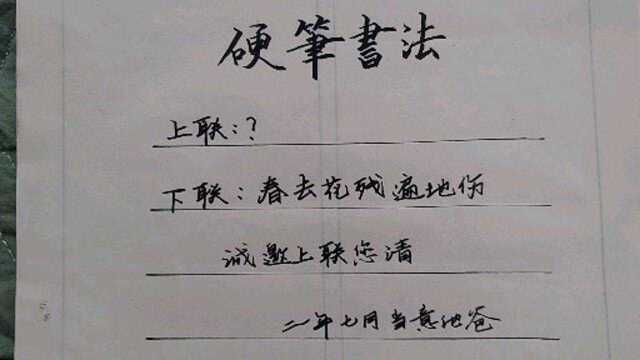 硬筆書法
上联:?
下联:春去花残遍地伤
诚邀上联您清
二一年七月当意他爸